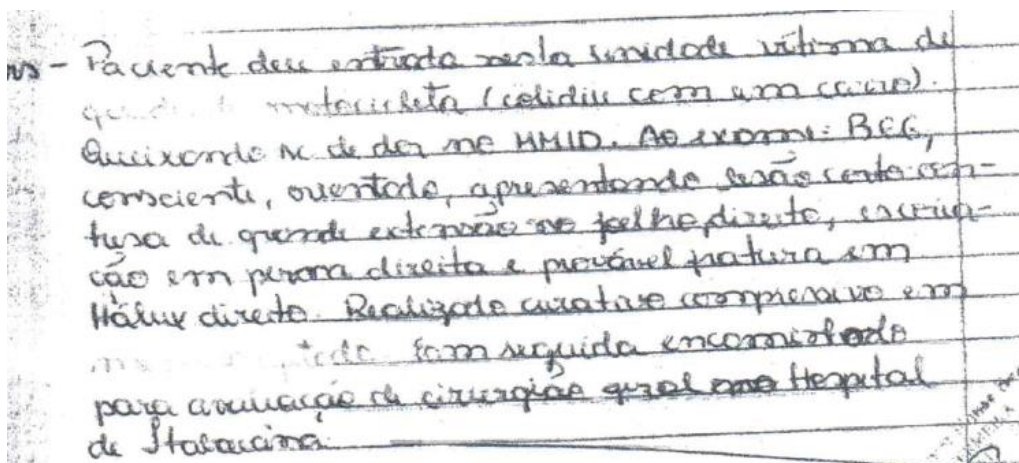 - Paciente deu entrada nesta unidade vítima de
motocicleta (colidiu com um carro).
Queixando se de dor no MMID. Ao exame: BEG,
consciente, orientado, apresentando lesão corto con-
tusa de grande extensão no joelho direito, escoria-
ção em perna direita e provável fratura em
Hálux direito. Realizado curativo compressivo em
seguida encaminhado
para avaliação de cirurgião geral no Hospital
de